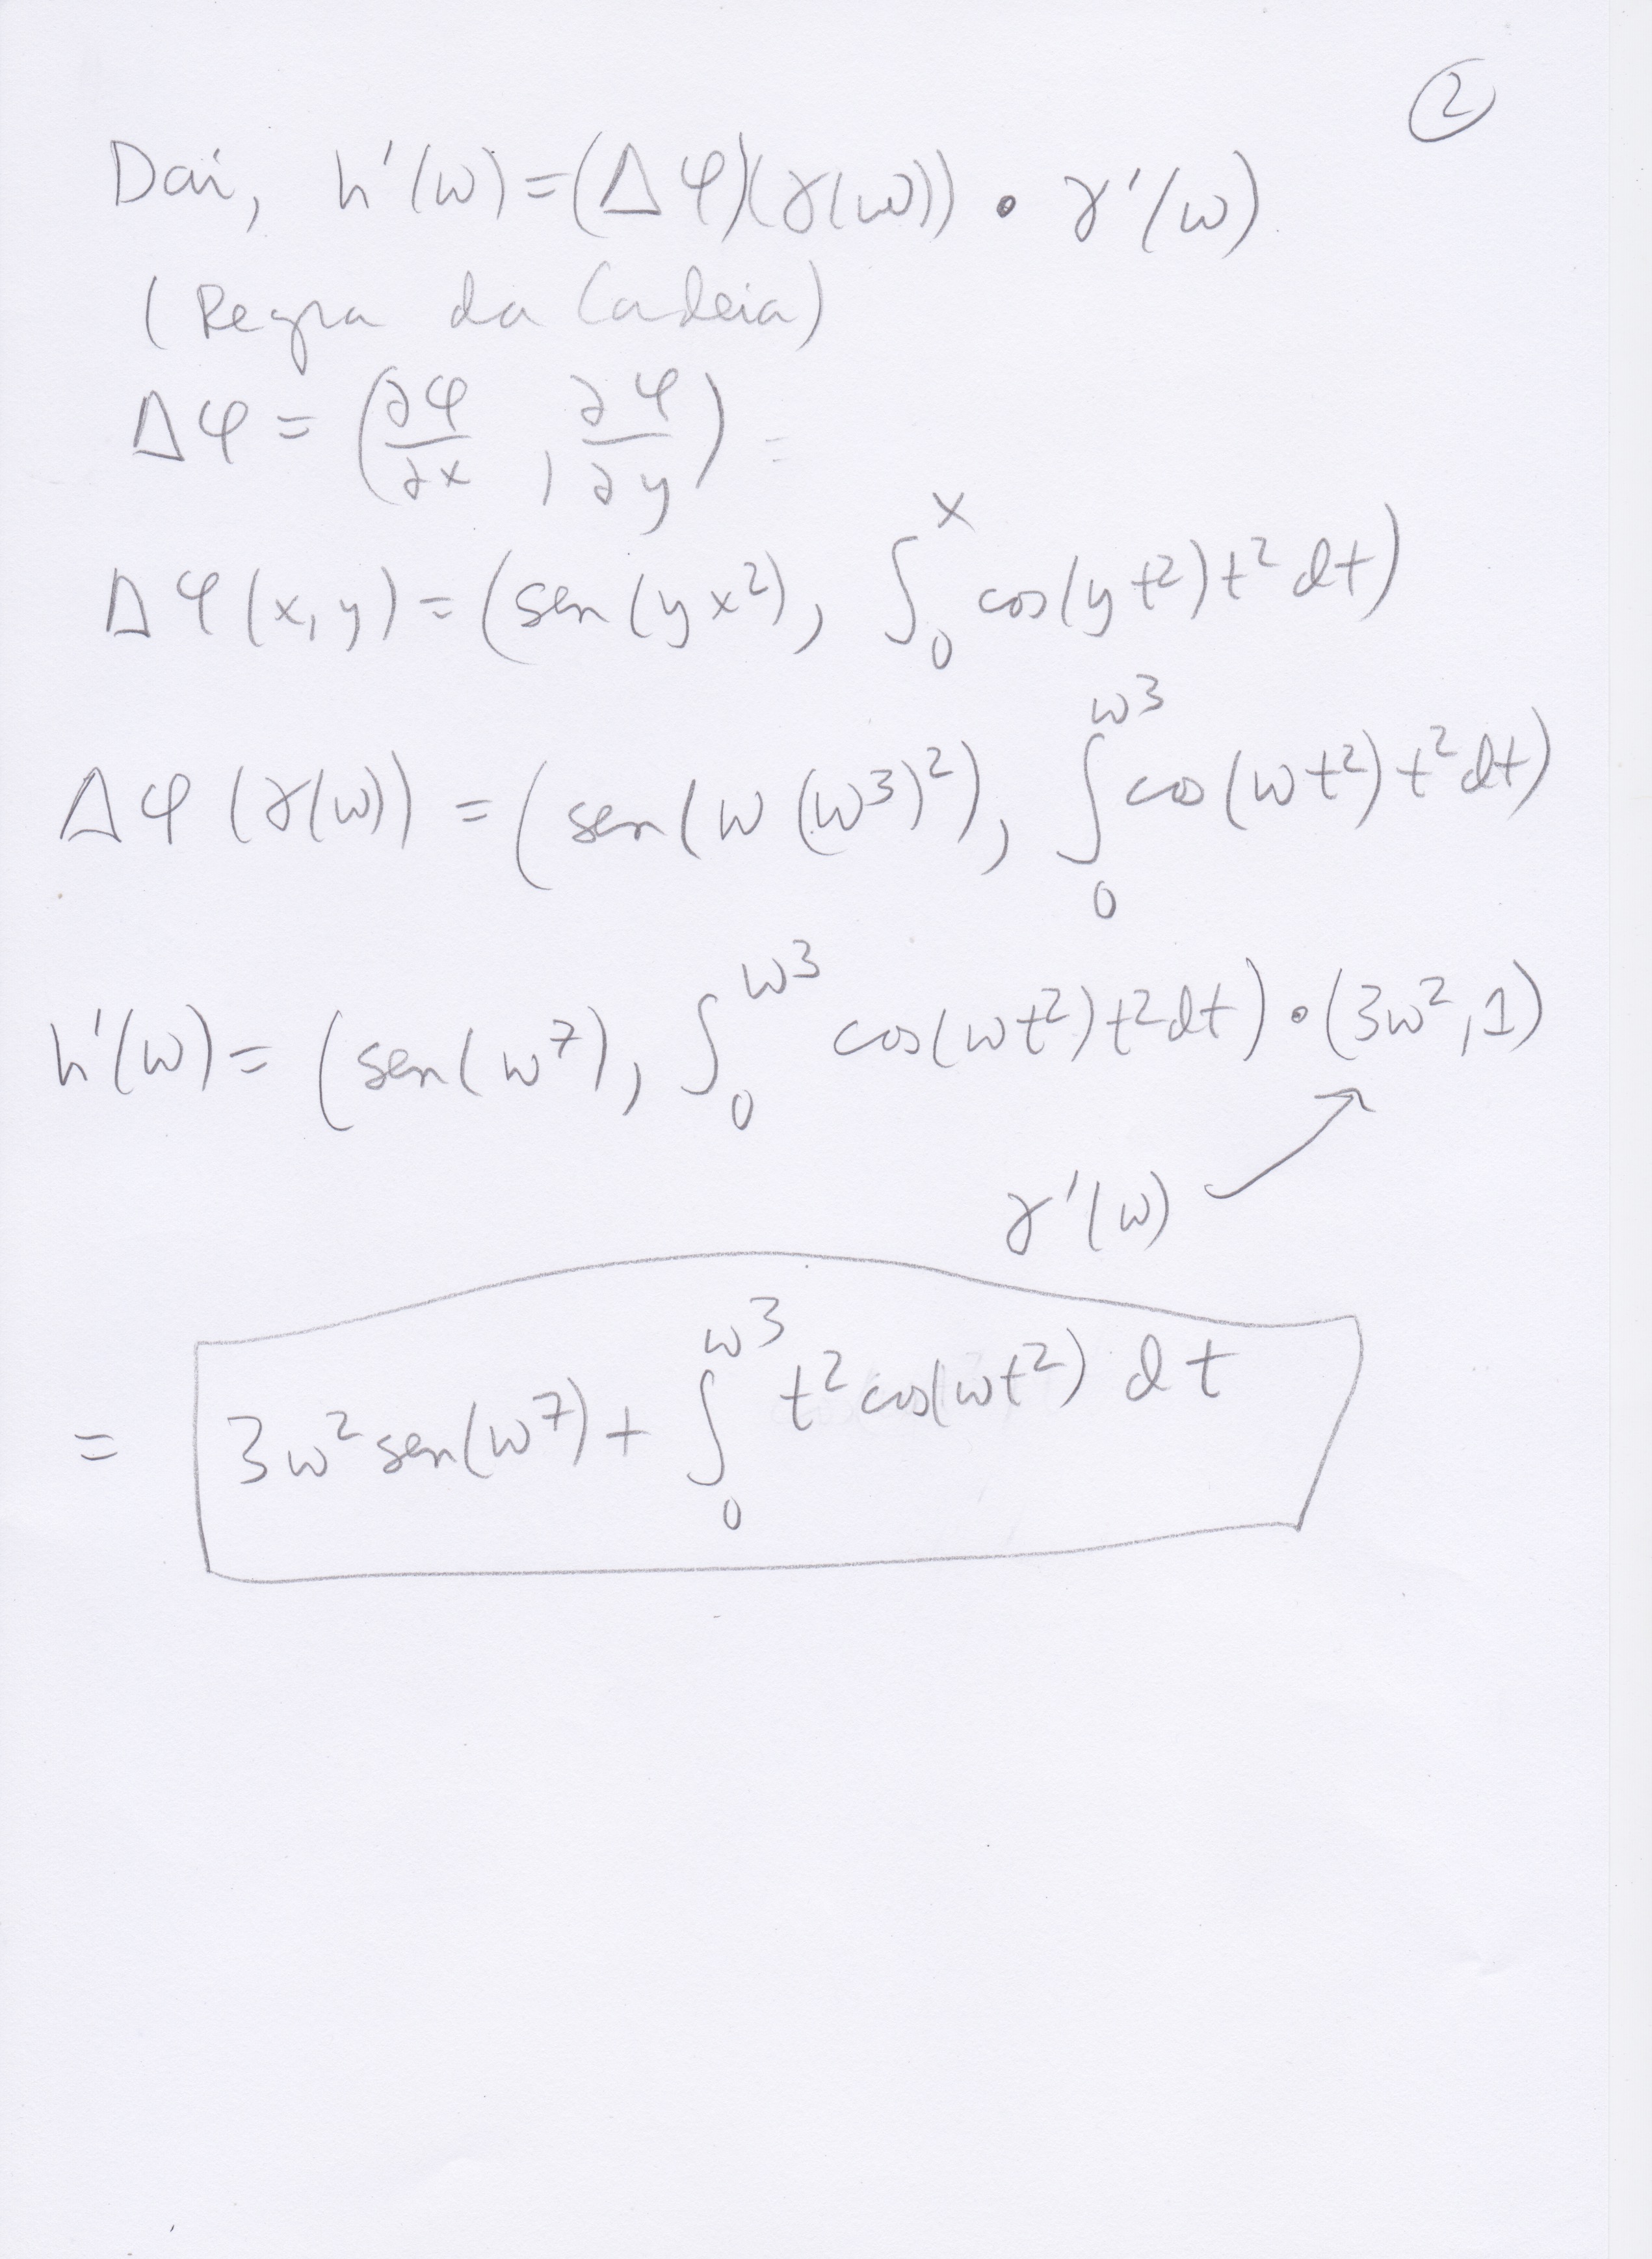 ②
Daí, h'(w) = (Δφ)(γ(w)) • γ'(w)
(Regra da Cadeia)
Δφ = (∂φ/∂x, ∂φ/∂y) =
Δφ(x, y) = (sen(yx²), ∫₀ˣ cos(yt²) t² dt)
Δφ(γ(w)) = (sen(w(w³)²), ∫₀^w³ cos(wt²) t² dt)
h'(w) = (sen(w⁷), ∫₀^w³ cos(wt²) t² dt) • (3w², 1)
γ'(w)
= 3w² sen(w⁷) + ∫₀^w³ t² cos(wt²) dt